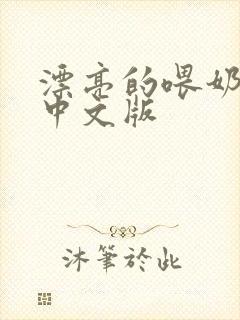 漂亮的喂奶
中文版
沐筆於此